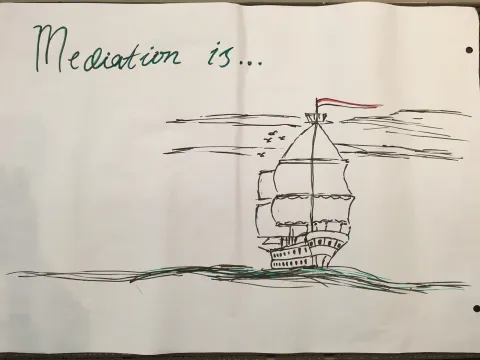 Mediation is...